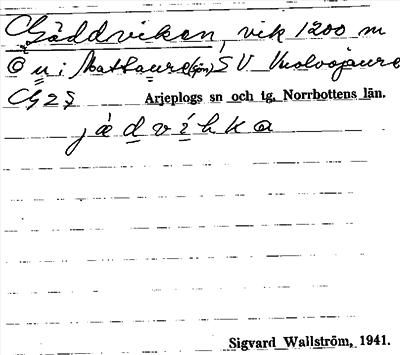 Gäddviken, vik 1200 m
u i Mattaure(sjön) SV Vuolvojaure
Arjeplogs sn och tg, Norrbottens län.
jädvìkka
Sigvard Wallström, 1941.